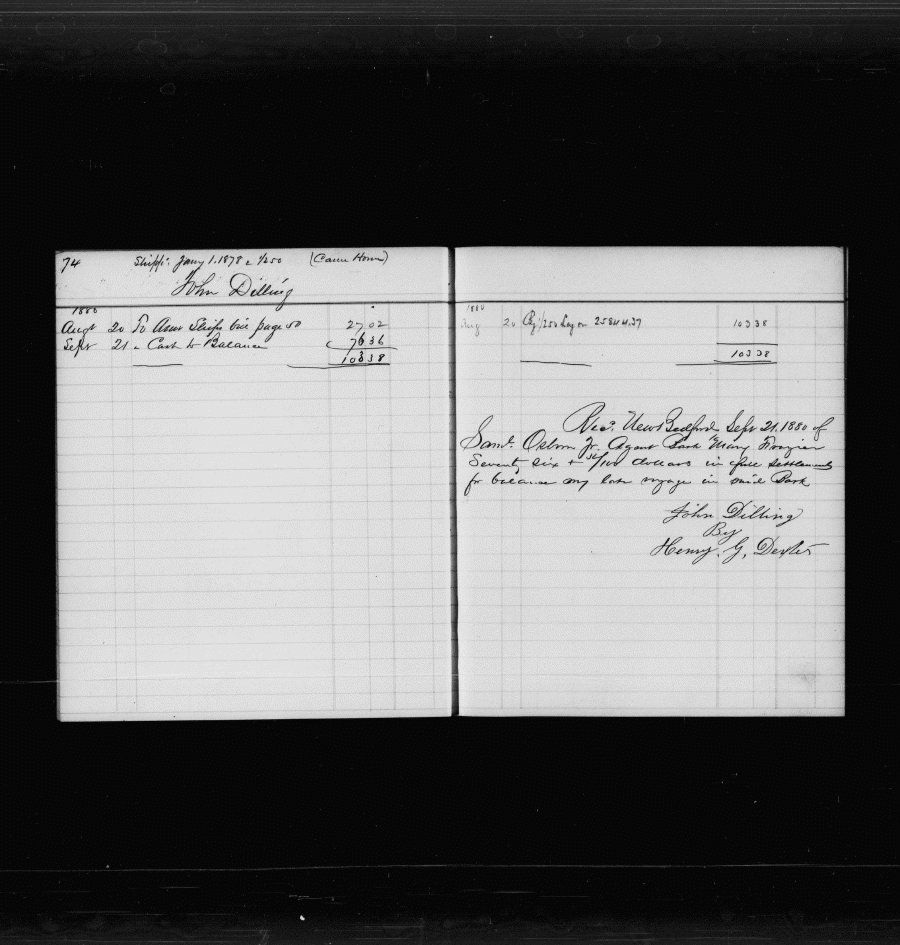 74 Shipp'd Jany 1. 1878 @ 1/250 (Came Home)
John Dilling
1880
Augt 20 To Amt Ships bill page 50 27 02
Sept 21 " Cash to Balance 76 36
103 38
1880
Aug 20 By 1/250 Lay on 25844.37 103 38
103 38
Recd. New Bedford Sept 21. 1880 of
Saml. Osborn Jr. Agent Bark Mary Frazier
Seventy six + 36/100 dollars in full settlement
for balance my late voyage in said Bark
John Dilling
By
Henry. G. Dexter